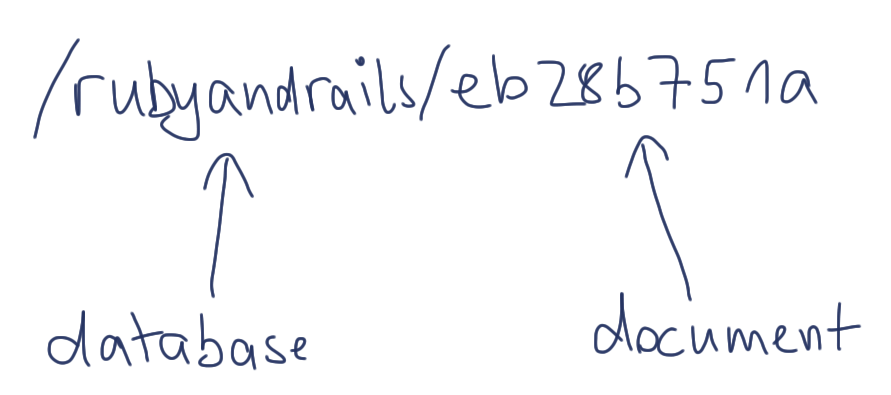 /rubyandrails/eb28b751a
database
document